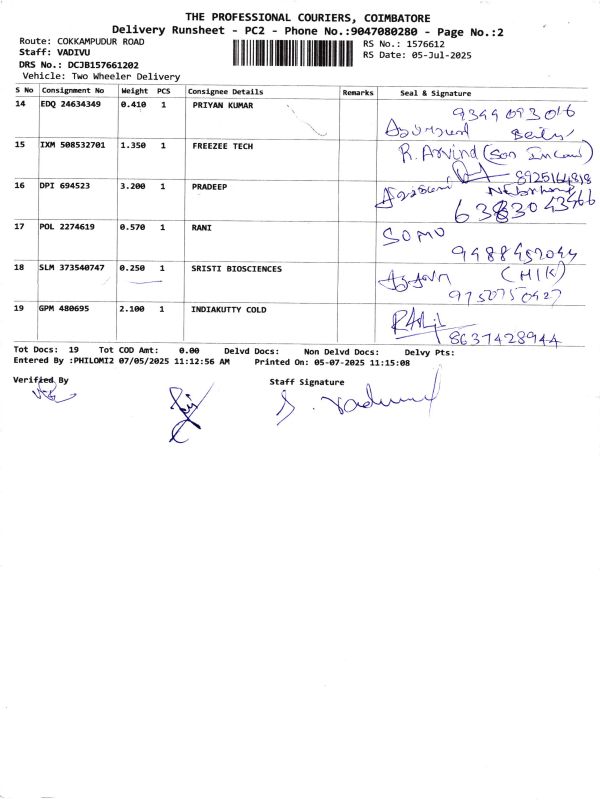 THE PROFESSIONAL COURIERS, COIMBATORE
Delivery Runsheet - PC2 - Phone No.:9047080280 - Page No.:2
Route: COKKAMPUDUR ROAD
Staff: VADIVU
DRS No.: DCJB157661202
Vehicle: Two Wheeler Delivery
RS No.: 1576612
RS Date: 05-Jul-2025
S No Consignment No Weight PCS Consignee Details Remarks Seal & Signature
14 EDQ 24634349 0.410 1 PRIYAN KUMAR 9344093016
15 IXM 508532701 1.350 1 FREEZEE TECH R. Arvind (Son In Law)
8925164818
16 DPI 694523 3.200 1 PRADEEP
6383043466
17 POL 2274619 0.570 1 RANI SOMU
9488452044
18 SLM 373540747 0.250 1 SRISTI BIOSCIENCES
9750750427
19 GPM 480695 2.100 1 INDIAKUTTY COLD
8637428944
Tot Docs: 19 Tot COD Amt: 0.00 Delvd Docs: Non Delvd Docs: Delvy Pts:
Entered By :PHILOMI2 07/05/2025 11:12:56 AM Printed On: 05-07-2025 11:15:08
Verified By Staff Signature
S. Vadivu